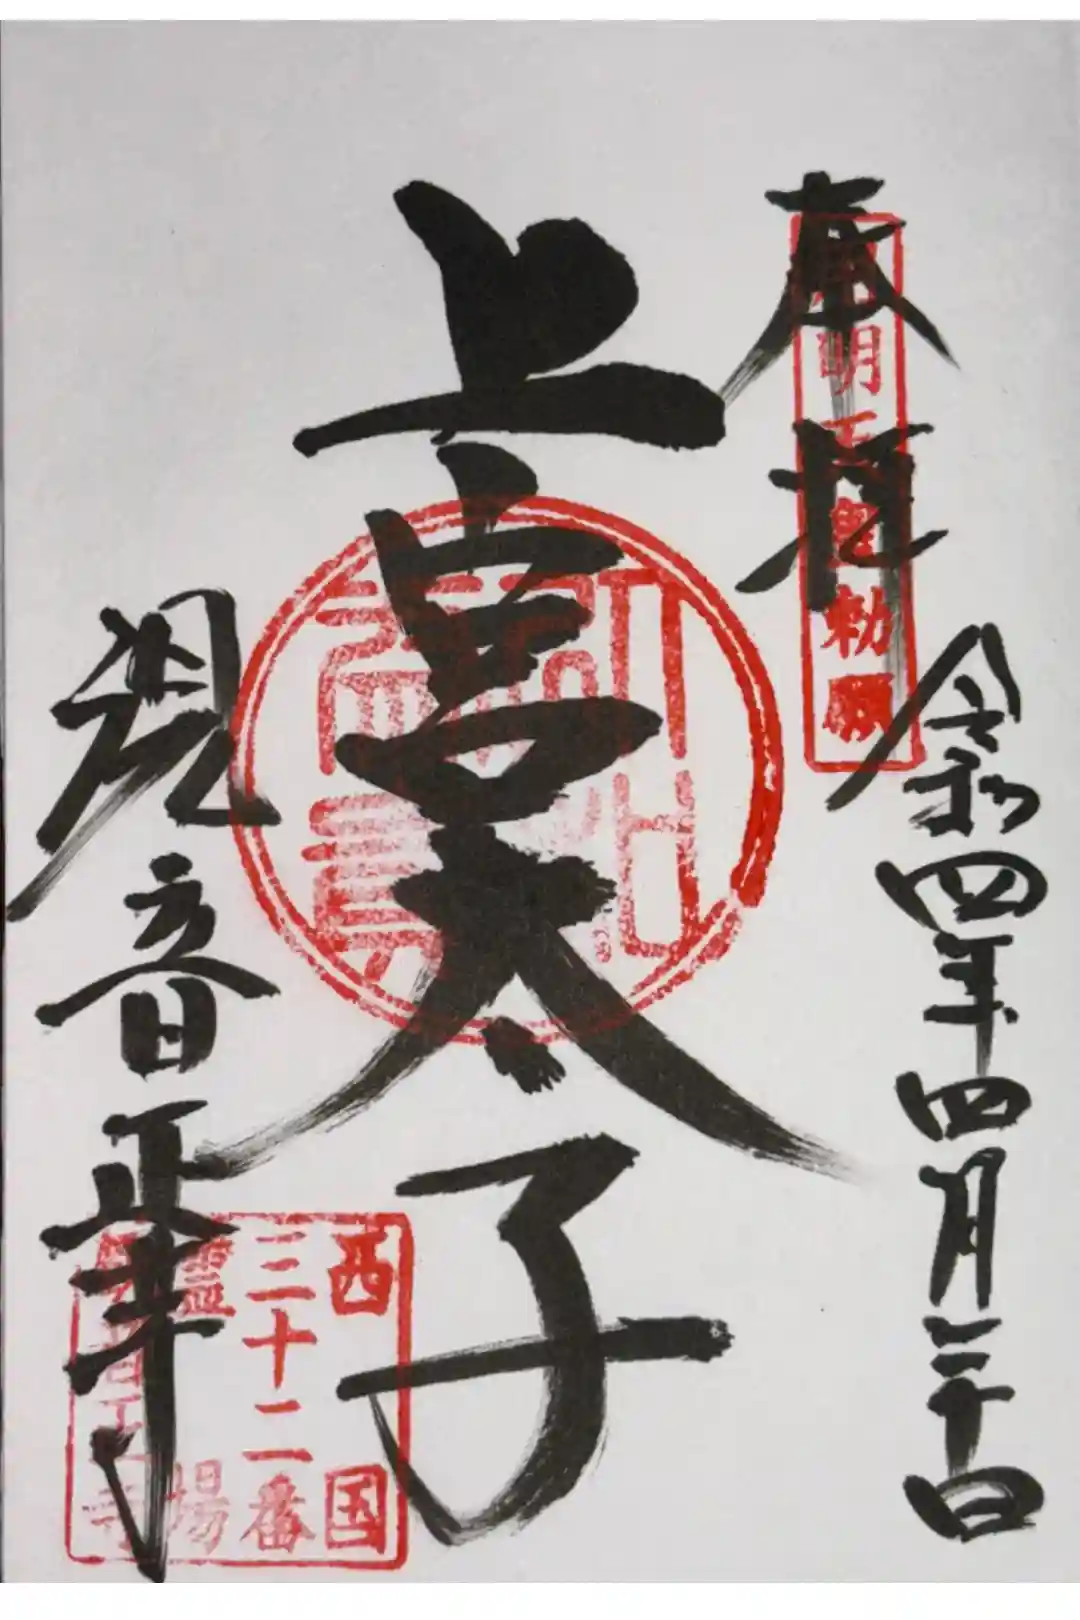 奉拝
用明天皇勅願
令和四年四月三十日
上宮太子
観音正寺
西国
三十二番
霊場
観音正寺